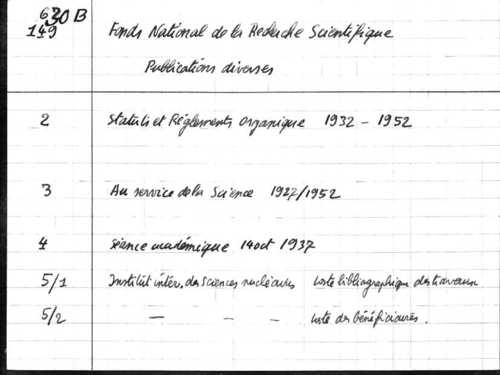 630 B
149 Fonds National de la Recherche Scientifique
Publications diverses
2 Statuts et Réglements organique 1932 - 1952
3 Au service de la Science 1927/1952
4 Séance académique 14 oct 1937
5/1 Institut inter. des Sciences nucléaires Liste bibliographique des travaux
5/2 — - - Liste des bénéficiaires.